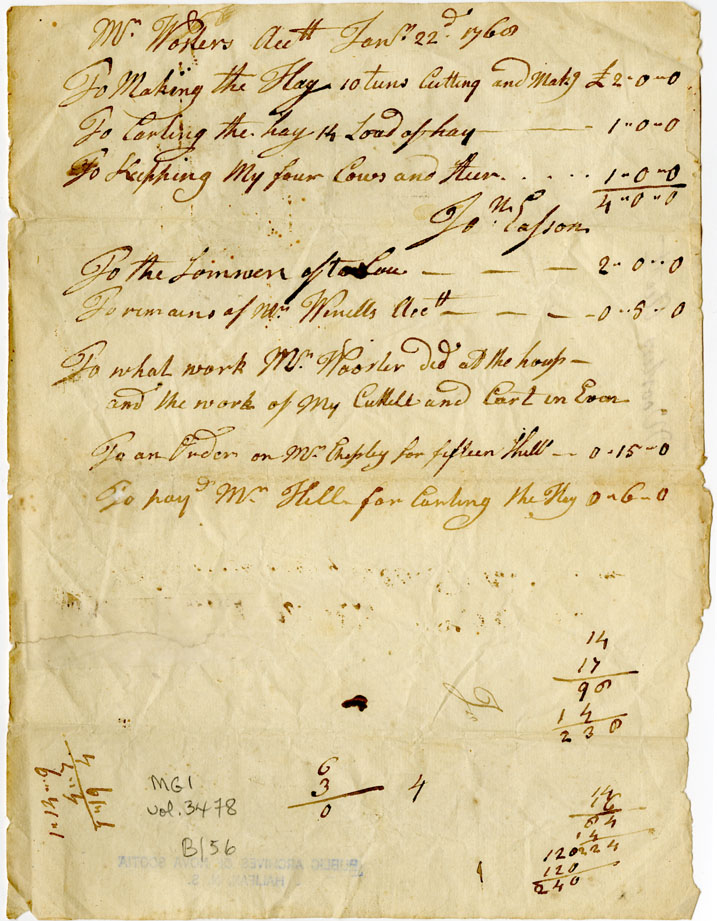 Mr Worsters Acctt Janry 22d 1768
To Making the Hay 10 tuns Cutting and Makg £ 2-0-0
To Carting the hay 14 Load of hay 1-0-0
To Keepping My four Cows and Steer 1-0-0
4-0-0
Jon Easson
To the 2-0-0
To remains of Mr Winells Actt 0-8-0
To what work Mr Woorster did at the hous
and the work of My Cuttell and Cart in Evon
To an Order on Mr for fifteen Shill 0-15-0
To payd Mr Hill for Carting the Hay 0-6-0
14
17
98
14
238
6
3
0
4
MG1
vol. 3478
B/56
14
16
84
14
224
120
120
240
PUBLIC ARCHIVES OF NOVA SCOTIA
HALIFAX, N. S.